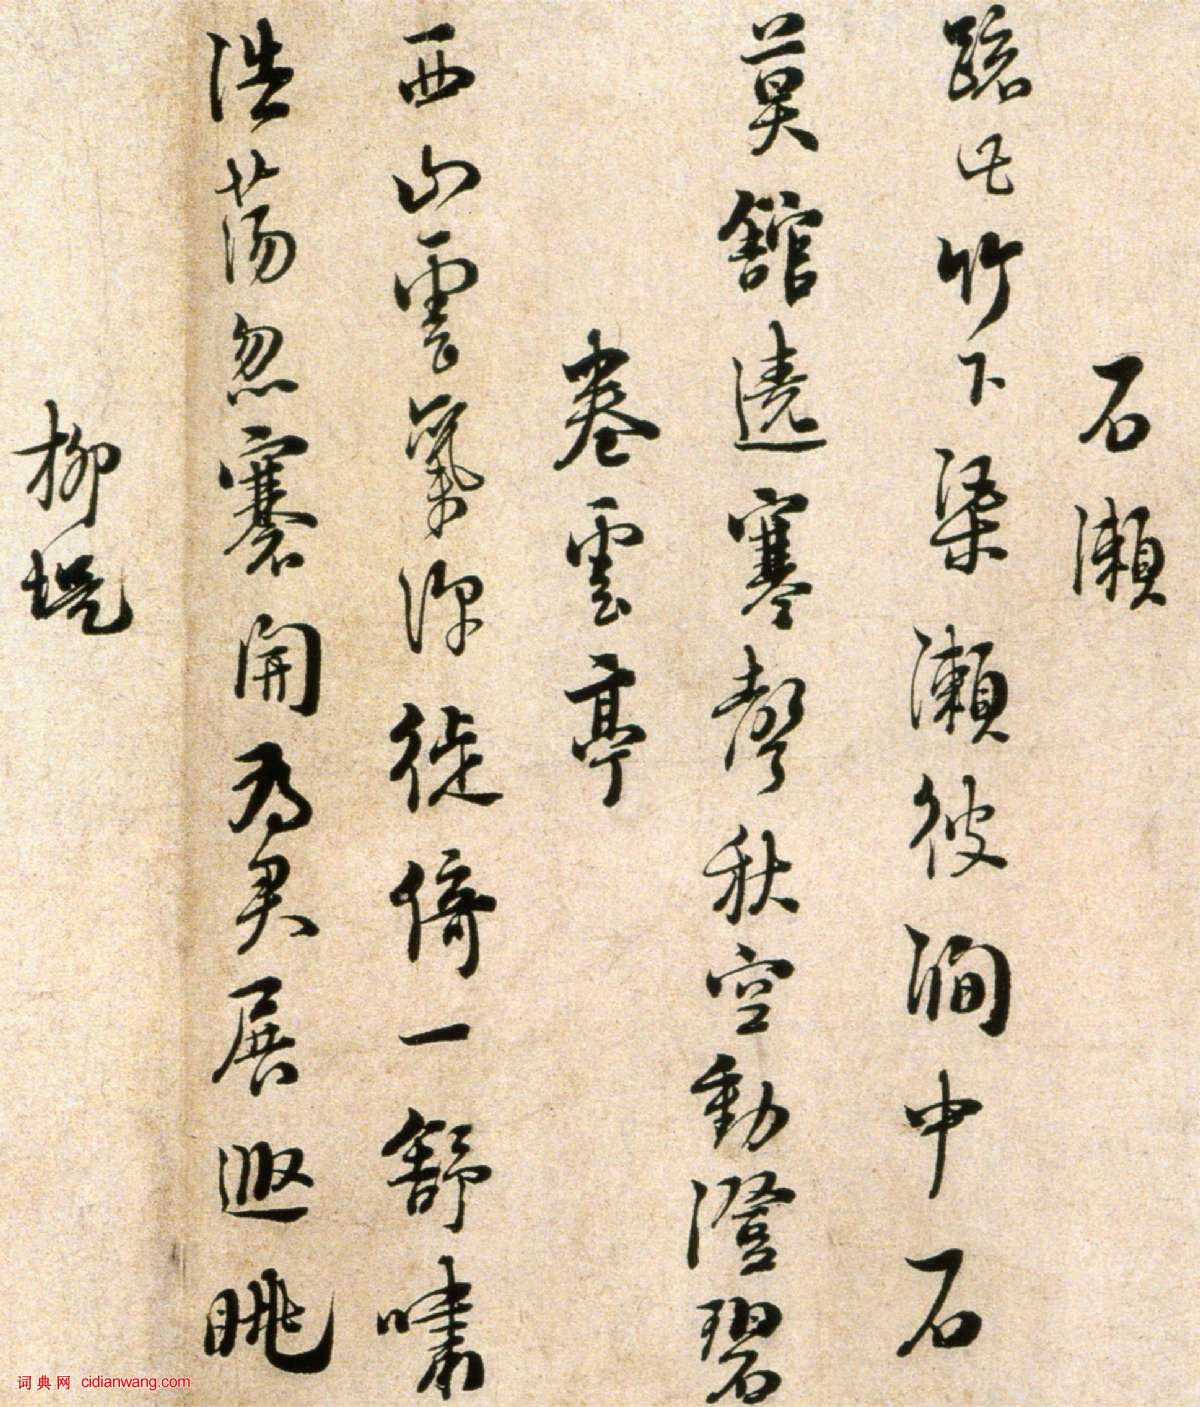 石瀨
疏此竹下渠瀨彼澗中石
莫館遶寒聲秋空動澄碧
卷雲亭
西山雲氣深徙倚一舒嘯
浩蕩忽褰開為君展遐眺
柳堤
词典网 cidianwang.com